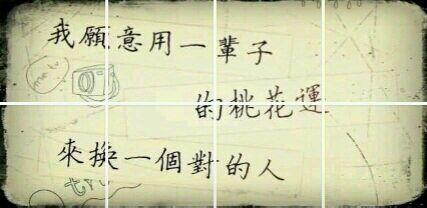 我願意用一輩子
的桃花運
來換一個對的人